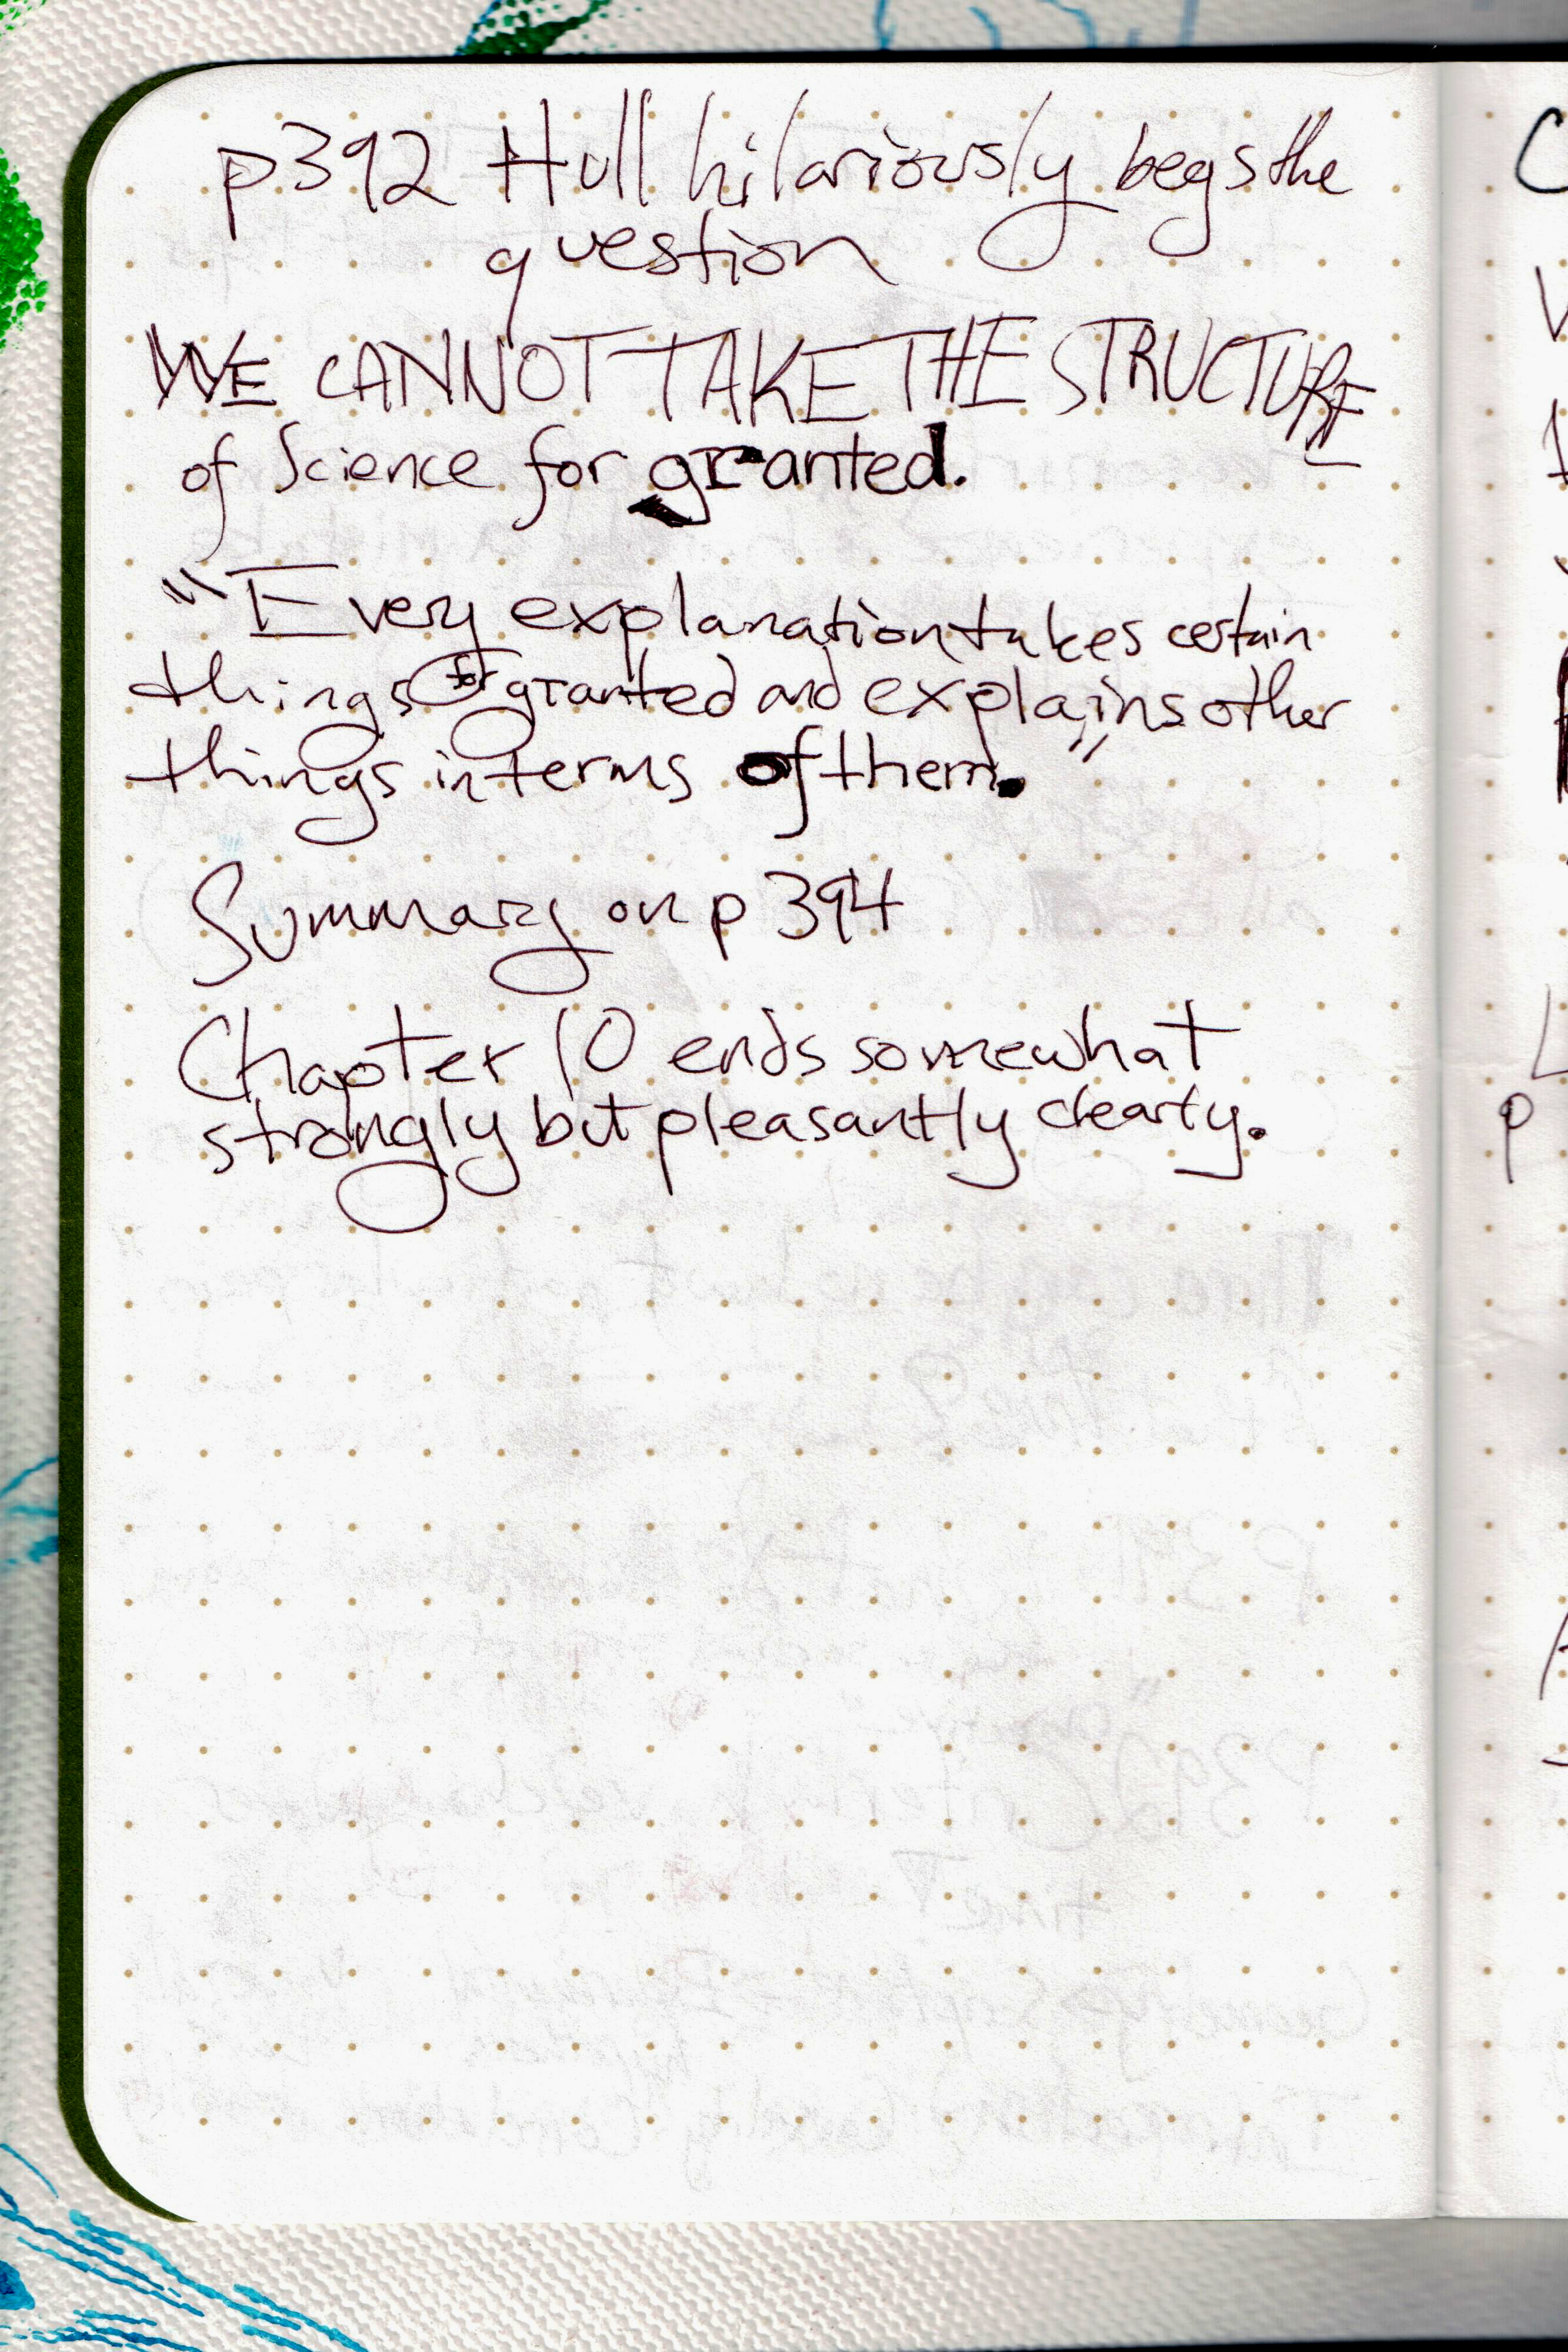 p392 Hull hilariously begs the
question
WE CANNOT TAKE THE STRUCTURE
of Science for granted.
"Every explanation takes certain
things for granted and explains other
things in terms of them."
Summary on p 394
Chapter 10 ends somewhat
strongly but pleasantly clearly.
p